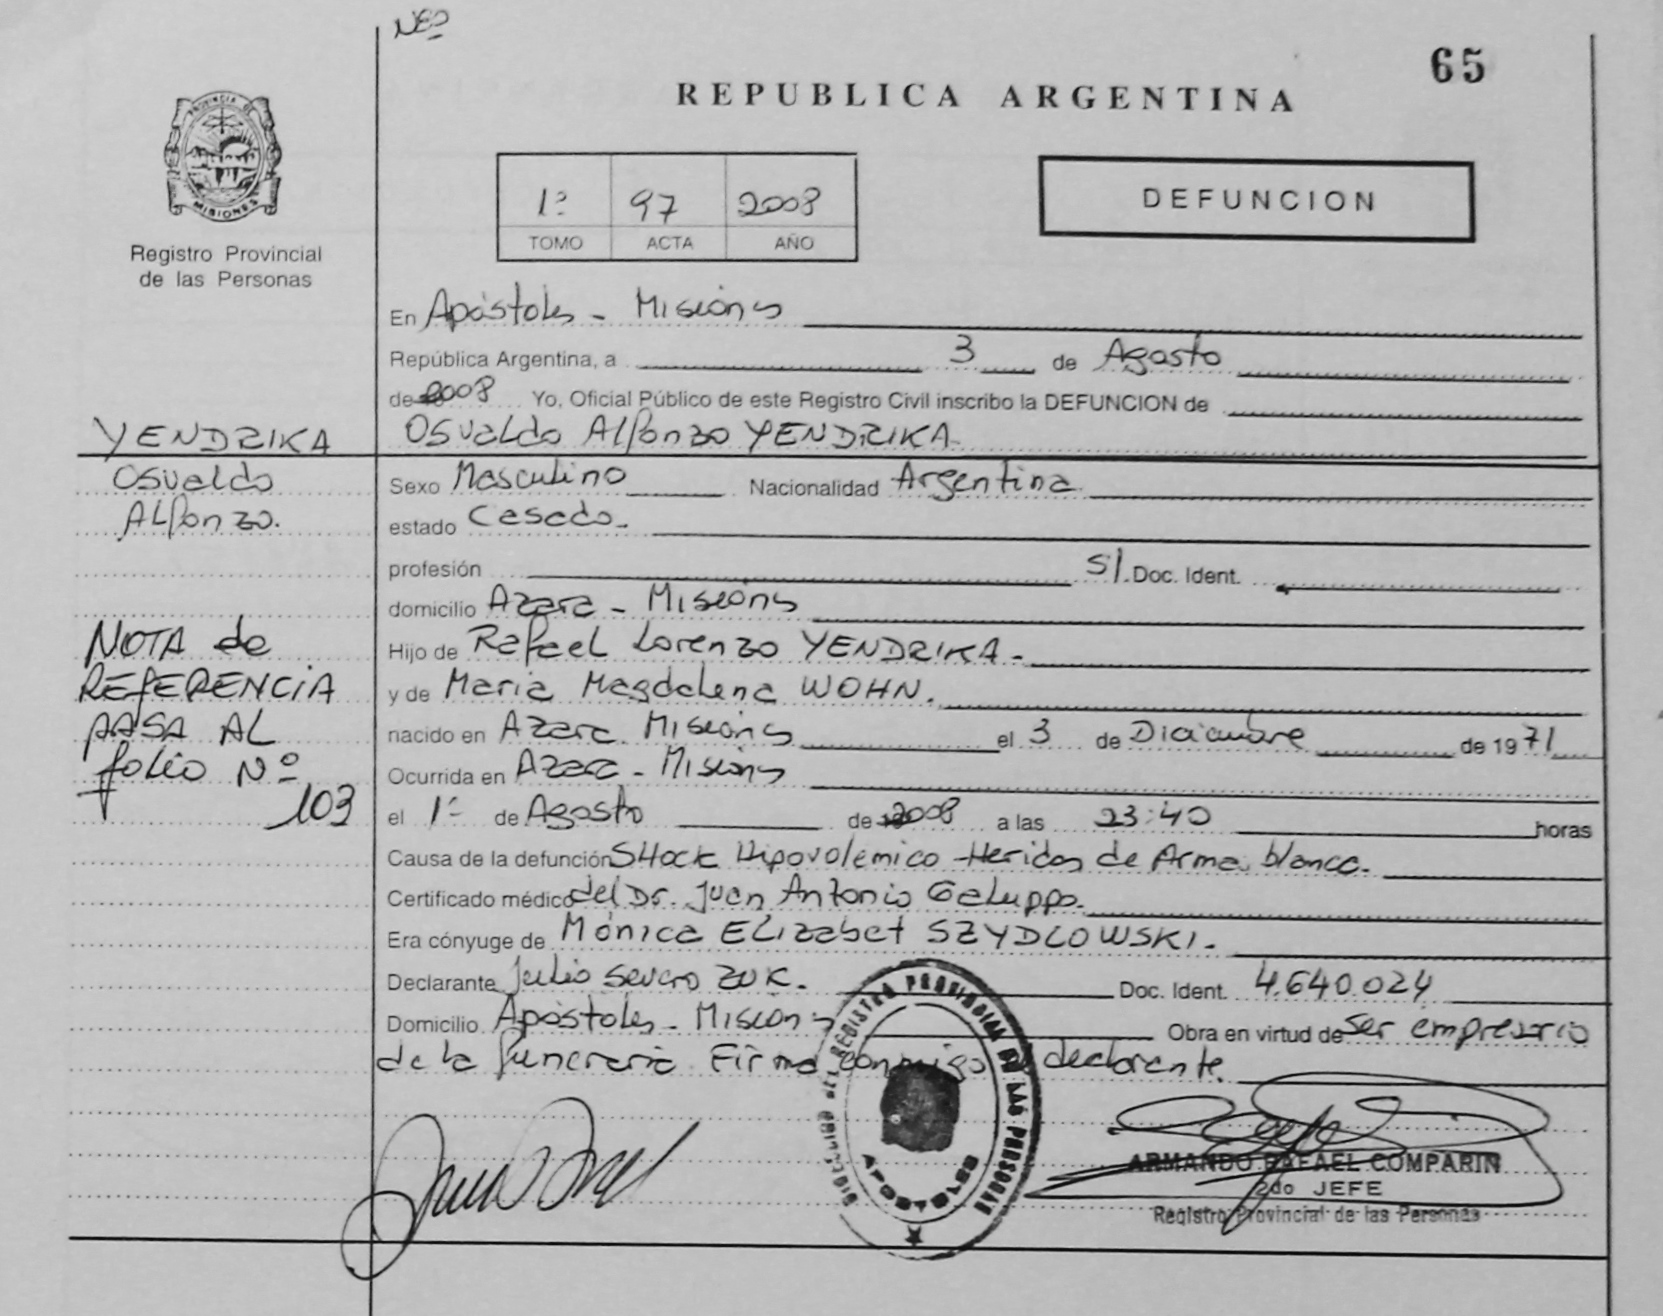 NEO
65
REPUBLICA ARGENTINA
PROVINCIA DE
MISIONES
Registro Provincial
de las Personas
1º 97 2008
TOMO ACTA AÑO
DEFUNCION
En Apóstoles - Misiones
República Argentina, a 3 de Agosto
de 2008 Yo, Oficial Público de este Registro Civil inscribo la DEFUNCION de
Osvaldo Alfonzo YENDRIKA
Sexo Masculino Nacionalidad Argentina
estado Casado.
profesión S/. Doc. Ident.
domicilio Azara - Misiones
Hijo de Rafael Lorenzo YENDRIKA.
y de Maria Magdalena WOHN.
nacido en Azara Misiones el 3 de Diciembre de 1971
Ocurrida en Azara - Misiones
el 1º de Agosto de 2008 a las 23:40 horas
Causa de la defunción SHock Hipovolémico - Heridas de Arma blanca.
Certificado médico del Dr. Juan Antonio Galuppo.
Era cónyuge de Mónica Elizabet SZYDLOWSKI.
Declarante Julio Severo ZUK. Doc. Ident. 4.640.024
Domicilio Apóstoles - Misiones Obra en virtud de Ser empresario
de la funeraria Firma conmigo el declarante.
YENDRIKA
Osvaldo
Alfonzo.
NOTA de
REFERENCIA
PASA AL
folio Nº
103
DIRECCION DEL REGISTRO PROVINCIAL DE LAS PERSONAS
APOSTOLES
ARMANDO RAFAEL COMPARIN
2do JEFE
Registro Provincial de las Personas